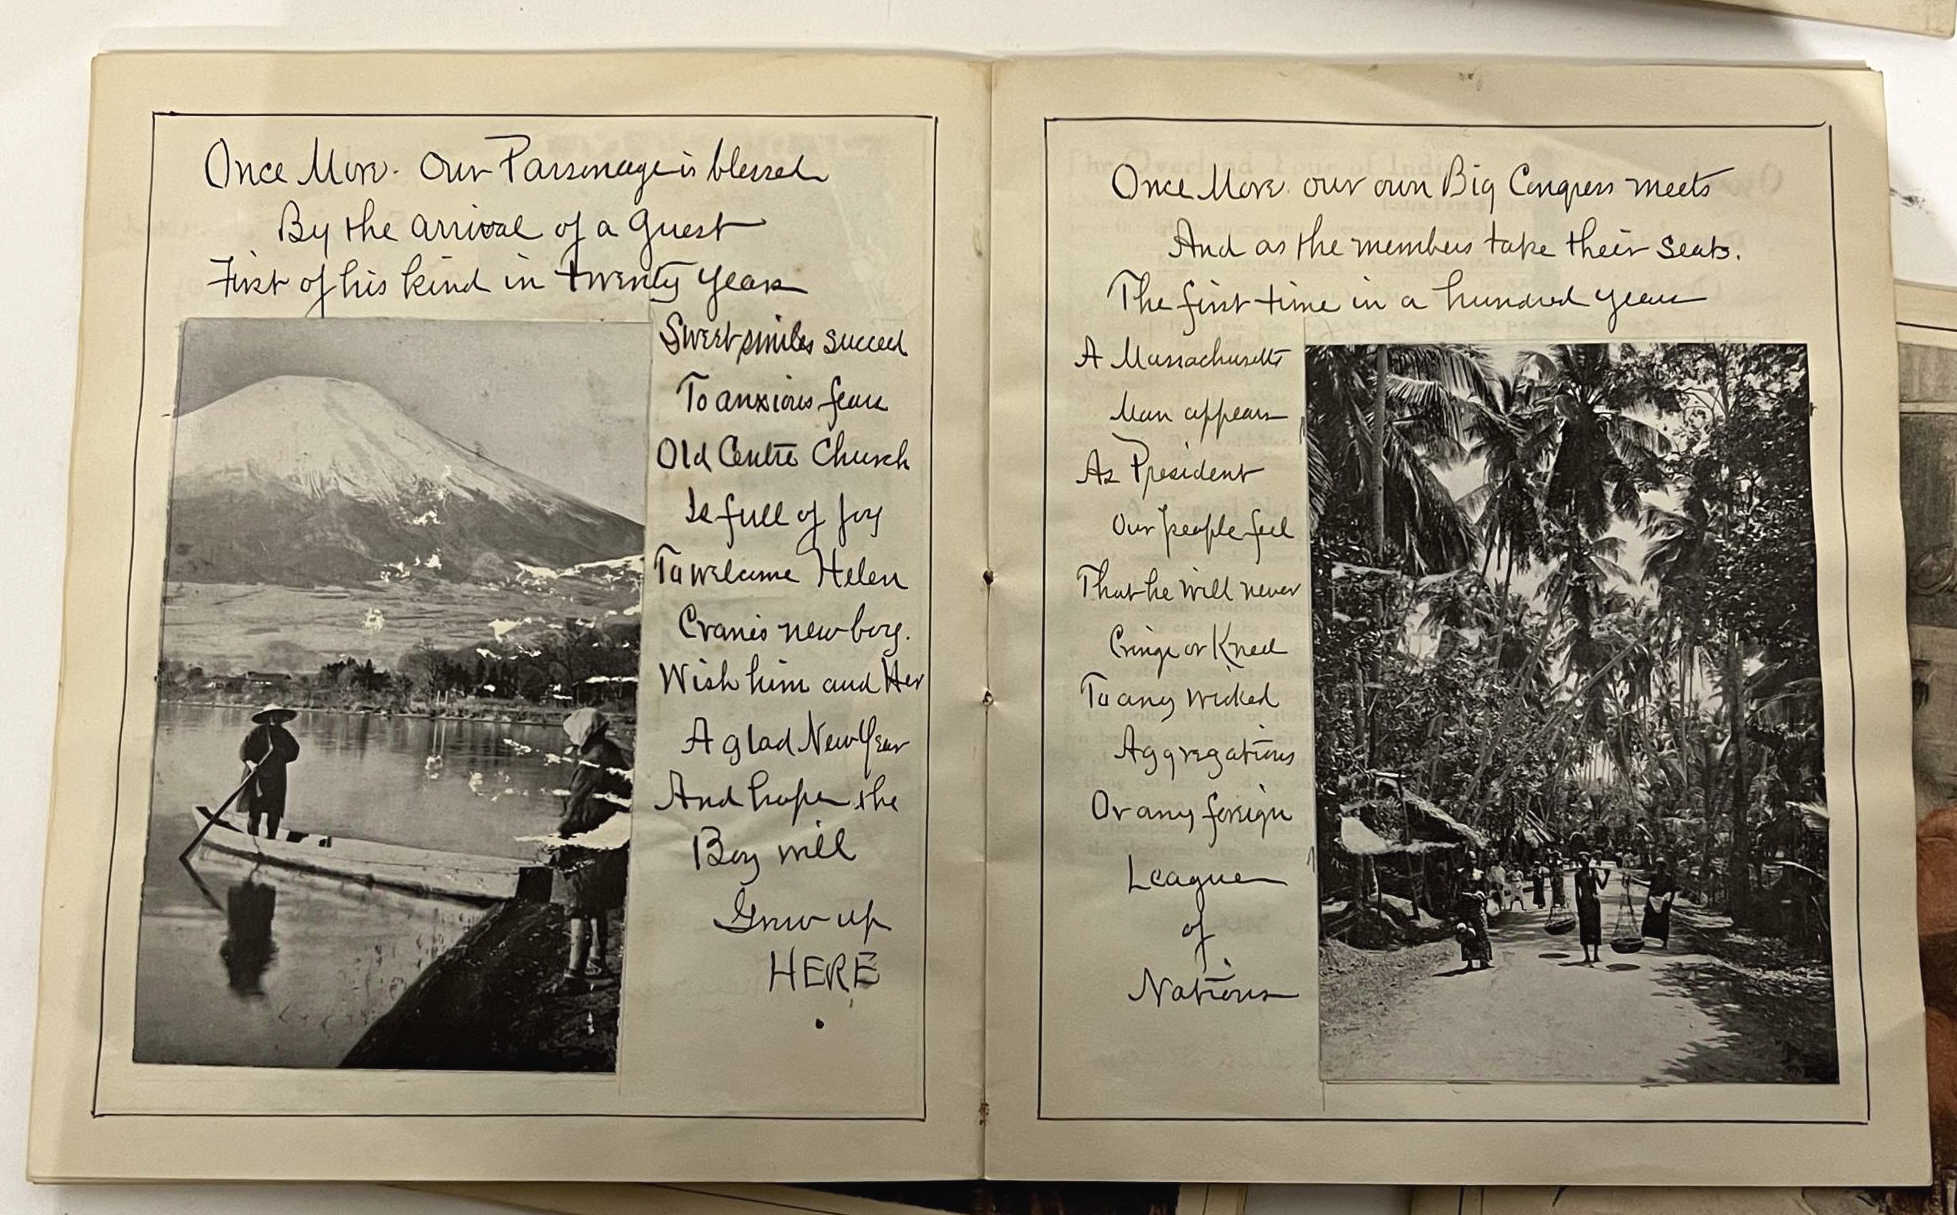 Once More. Our Parsonage is blessed
By the arrival of a Guest
First of his kind in twenty years
Sweet smiles succeed
To anxious fears
Old Centre Church
Is full of joy
To welcome Helen
Crane's new boy.
Wish him and Her
A glad New Year
And hopes the
Boy will
Grow up
HERE
Once More. our own Big Congress meets
And as the members take their seats.
The first time in a hundred years
A Massachusetts
Man appears
As President
Our people feel
That he will never
Cringe or Kneel
To any wicked
Aggregations
Or any foreign
League
of
Nations